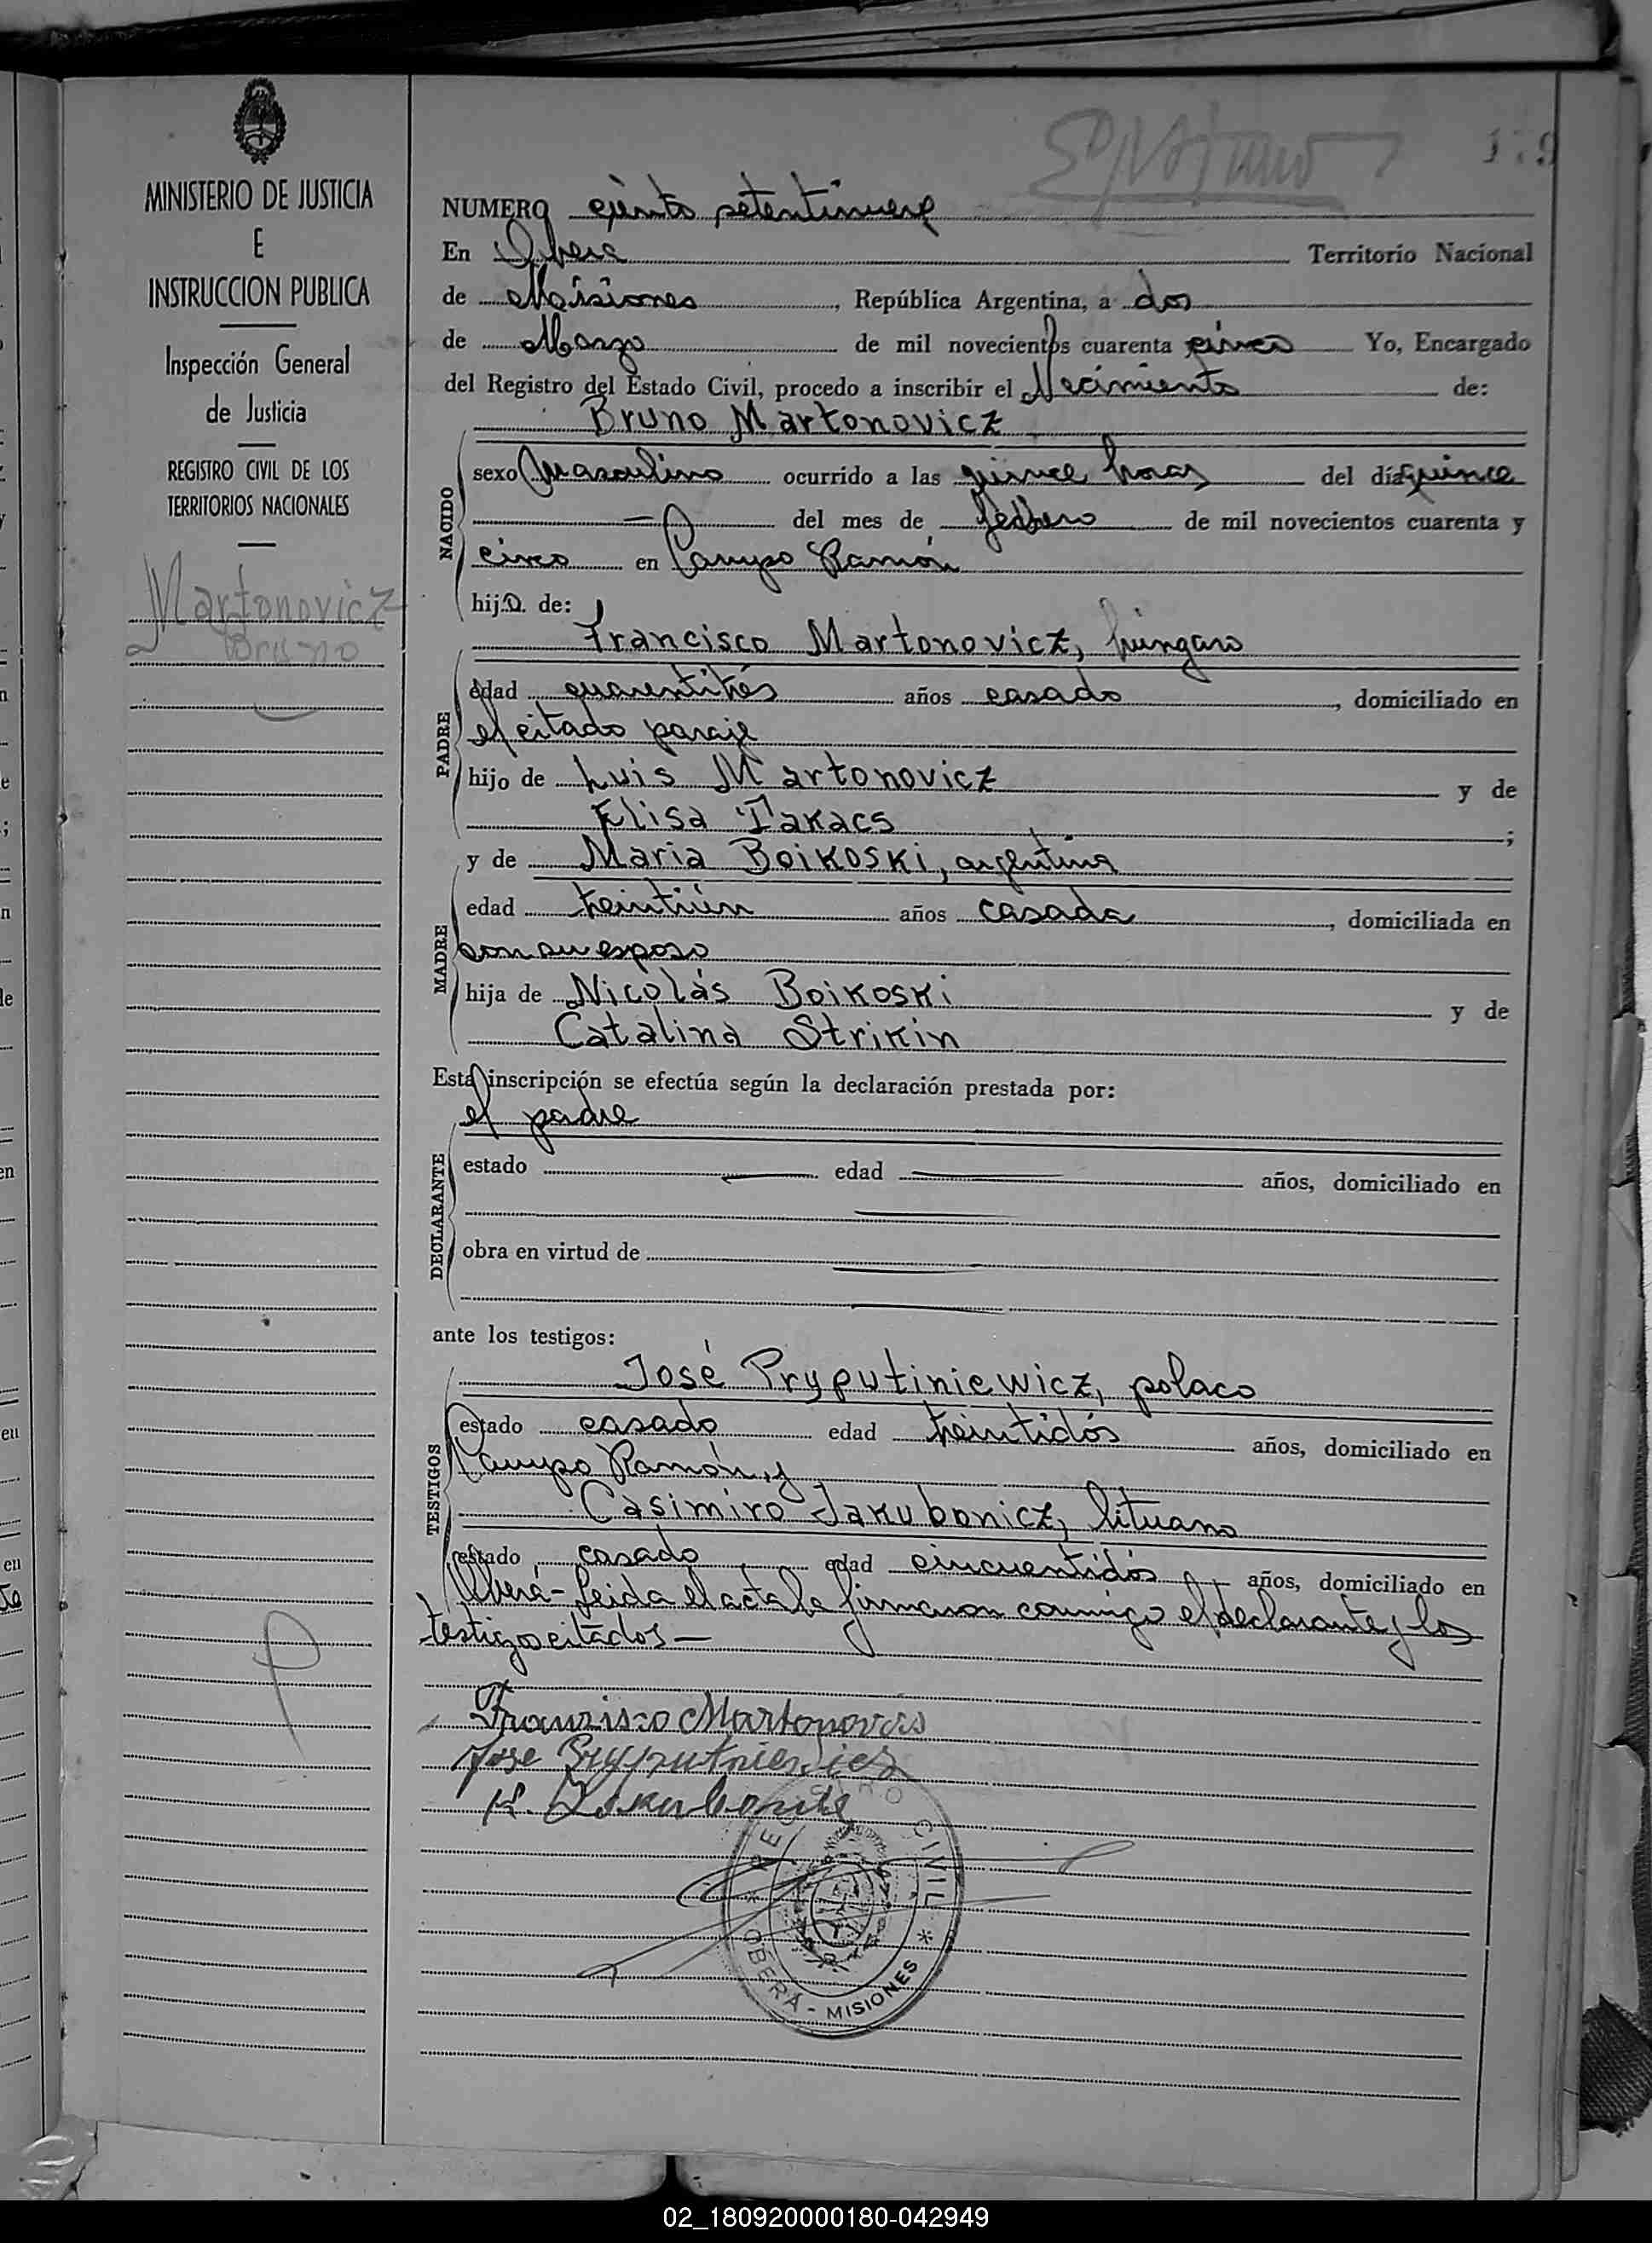 179
NUMERO ciento setentinueve
En Oberá Territorio Nacional
de Misiones, República Argentina, a dos
de Marzo de mil novecientos cuarenta cinco Yo, Encargado
del Registro del Estado Civil, procedo a inscribir el Nacimiento de:
Bruno Martonovicz
NACIDO
sexo Masculino ocurrido a las quince horas del día quince
del mes de febrero de mil novecientos cuarenta y
cinco en Campo Ramón
hijo de:
Francisco Martonovicz, húngaro
PADRE
edad cuarentitrés años casado, domiciliado en
el citado paraje
hijo de Luis Martonovicz y de
Elisa Takacs;
y de Maria Boikoski, argentina
MADRE
edad treintiún años casada, domiciliada en
con su esposo
hija de Nicolás Boikoski y de
Catalina Strikin
Esta inscripción se efectúa según la declaración prestada por:
el padre
DECLARANTE
estado edad años, domiciliado en
obra en virtud de
ante los testigos:
José Pryputiniewicz, polaco
TESTIGOS
estado casado edad treintidós años, domiciliado en
Campo Ramón, y
Casimiro Jakubonicz, lituano
estado casado edad cincuentidós años, domiciliado en
Oberá- Leida el acta la firmaron conmigo el declarante y los
testigos citados —
Franzisco Martonovics
Jose Pryputniewicz
K. Jakubonis
REGISTRO CIVIL
* OBERÁ - MISIONES *
MINISTERIO DE JUSTICIA
E
INSTRUCCION PUBLICA
Inspección General
de Justicia
REGISTRO CIVIL DE LOS
TERRITORIOS NACIONALES
Martonovicz
Bruno
02_180920000180-042949